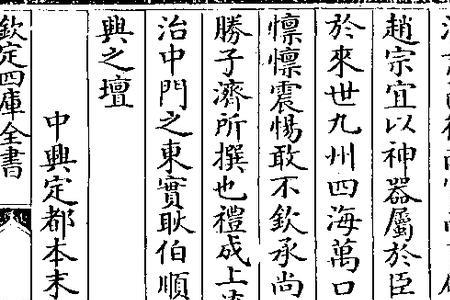 趙宗宜以神器屬於臣
於來世九州四海萬口
懍懍震惕敢不欽承尚
勝子濟所撰也禮成上
治中門之東實耿伯順
興之壇
中興定都本末
欽定四庫全書